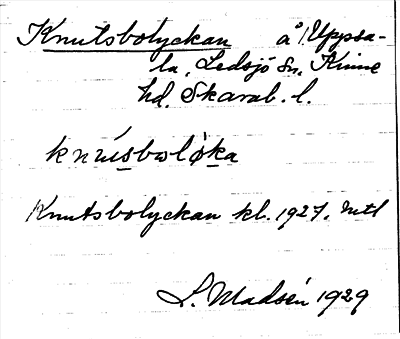 Knutsbolyckan å 1/1 Uppsa-
la, Ledsjö sn, Kinne
hd. Skarab. l.
knúsboløka
Knutsbolyckan kl. 1927. Mtl
L. Madsén 1929